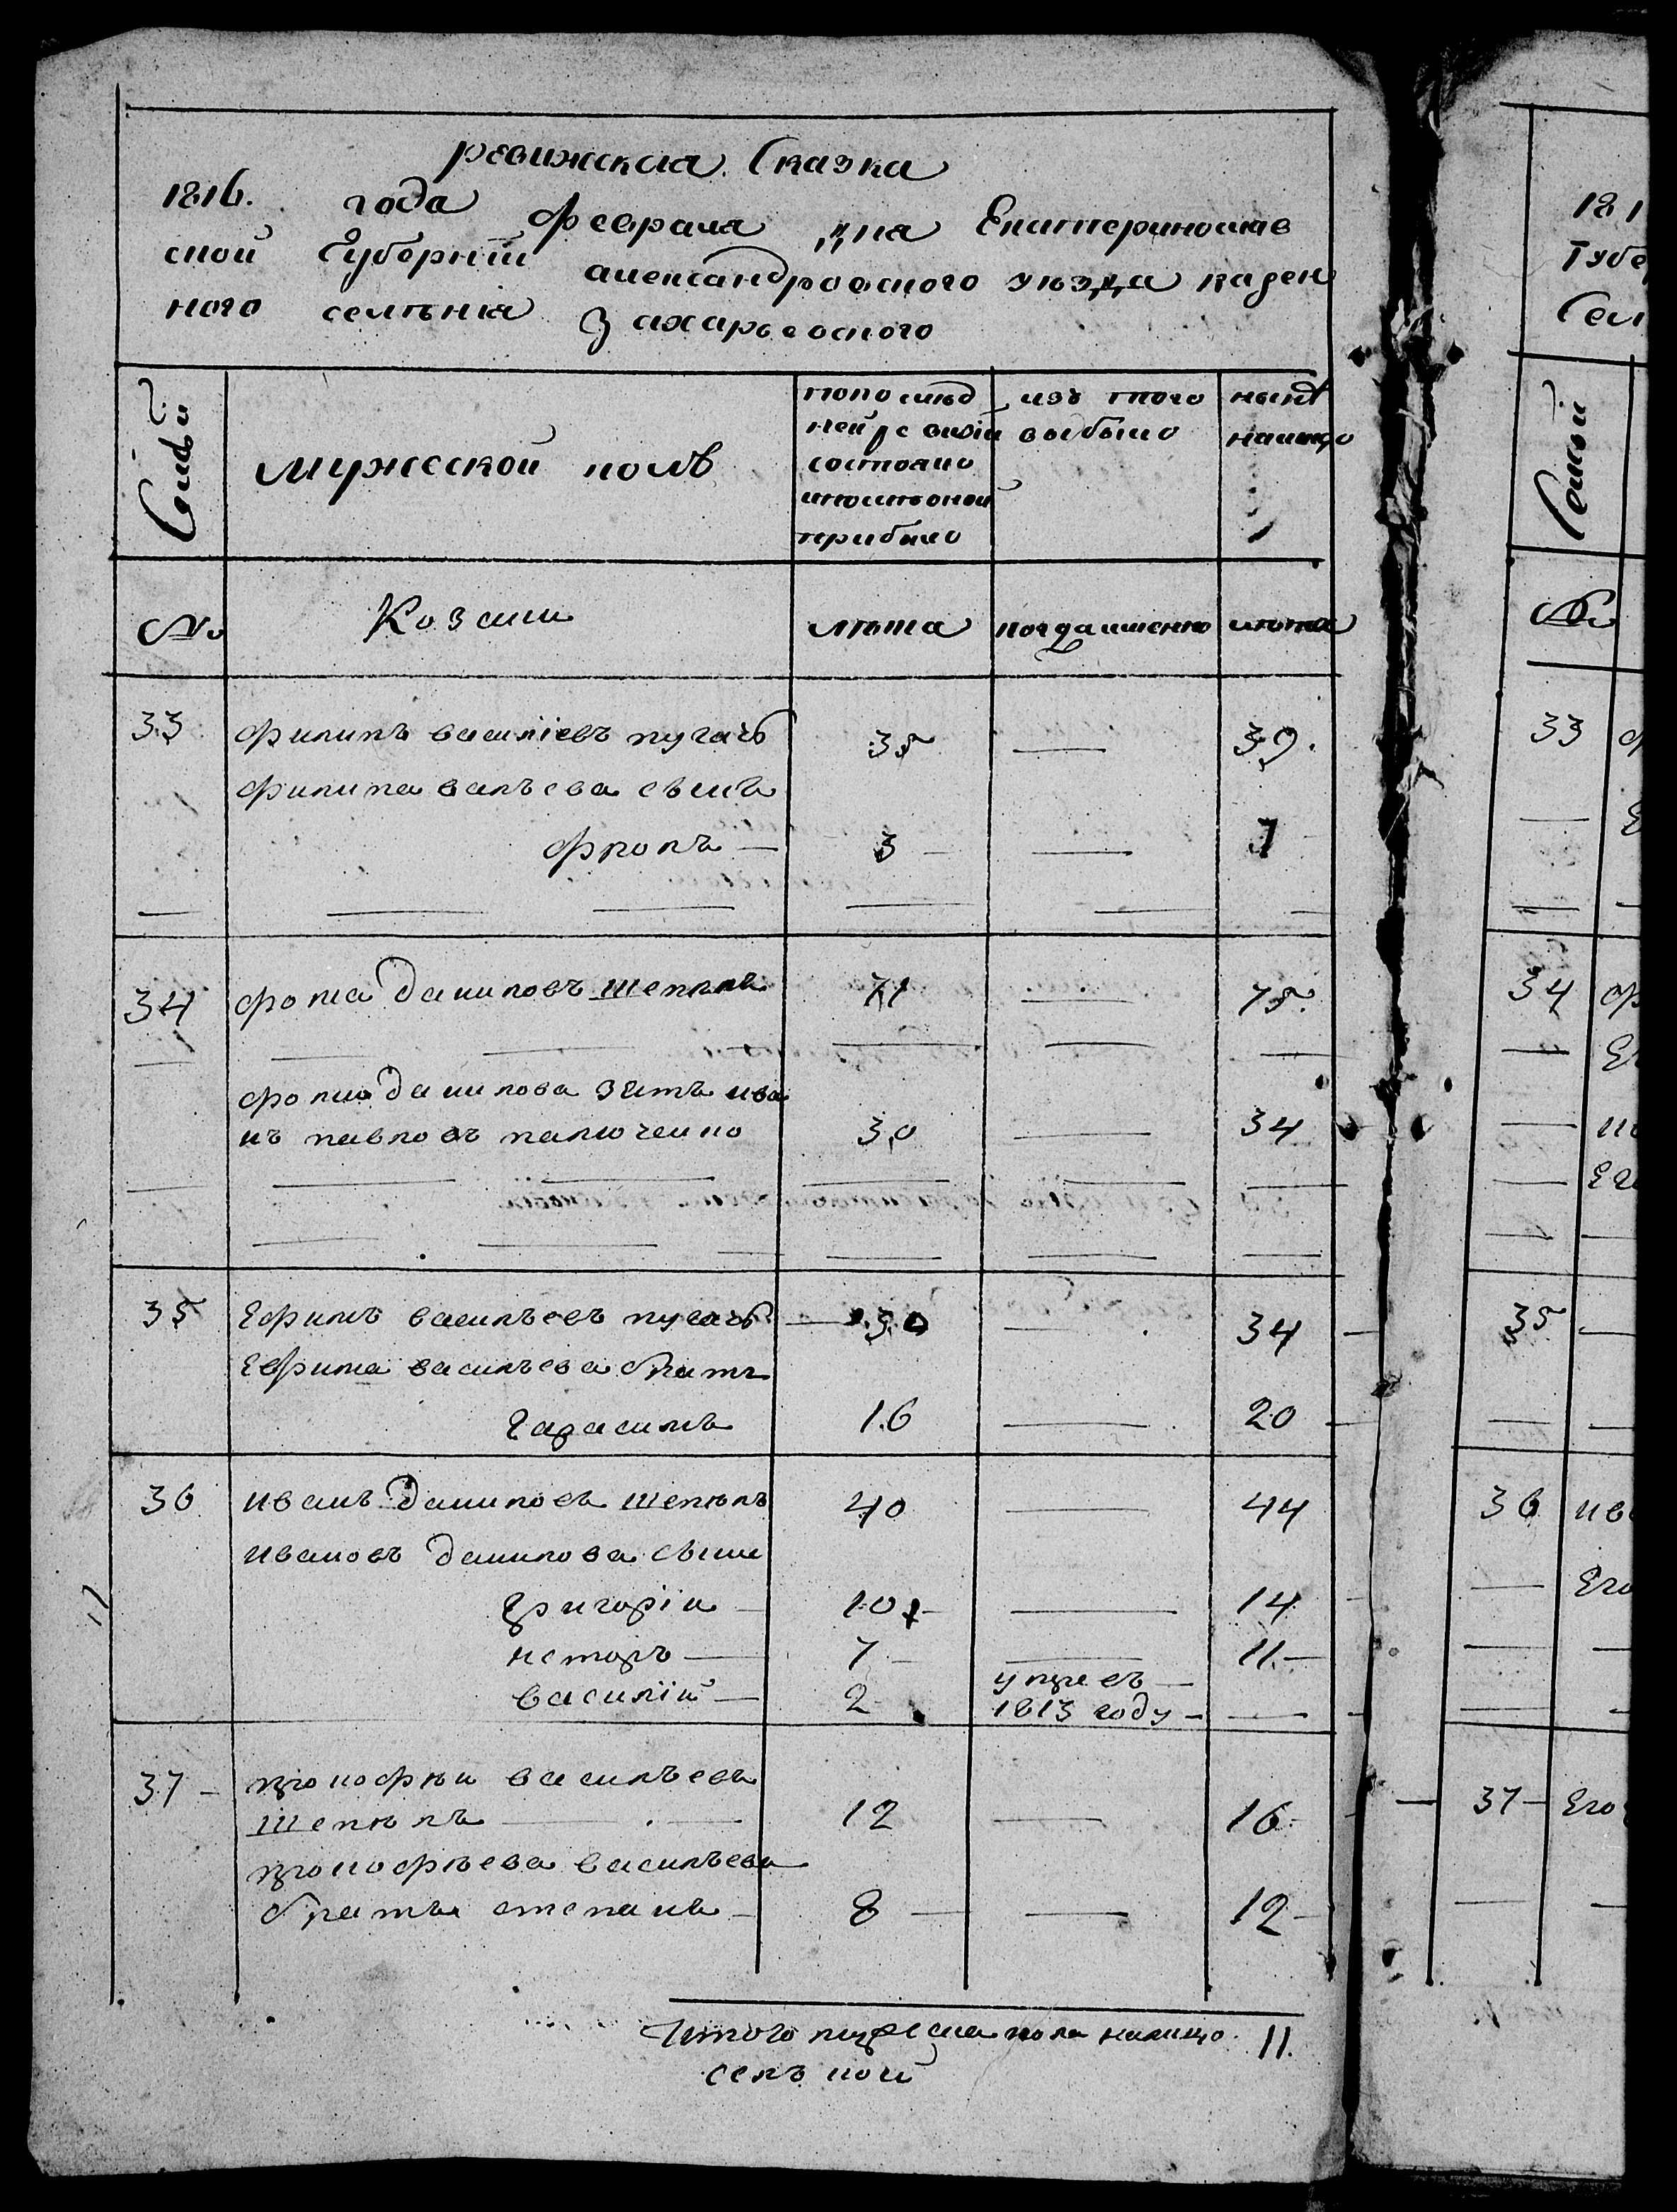 ревижская Сказка
1816. года февраля дня Екатеринослав
ской Губернїи александровского уезда казен
ного селѣнія Захарьевского
Семьи
мужеской полъ
по послѣд
ней ревизіи
состояло
и после оной
прибыло
изъ того
выбыло
нынѣ
налицо
№
Козаки
лѣта
когда именно
лѣта
33 филипъ василіевъ пугачъ 35 — 39.
филипа вальева сынъ
фролъ — 3 — 7
34 фома даниловъ шепель 71 — 75.
фомы данилова зять ива
нъ павловъ палюченко 30 — 34
35 Ефимъ васильевъ пугачъ — 30 — 34
Ефима васильева братъ
Гарасимъ 16 — 20
36 иванъ даниловъ шепель 40 — 44
ивановъ данилова сыны
Григорій 10 — 14
несторъ — 7 — 11 —
василій — 2 умре въ —
1813 году — —
37 — прокофѣи васильевъ
шепѣль — 12 — 16
прокофѣева васильева
братъ степанъ — 8 — — 12 —
Итого мужеска пола налицо 11.
181
Губе
Сел
Семьи
№
33
34
Ег
35
36 ив
Его
37 — Его